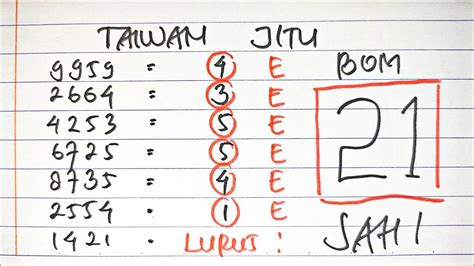 TAIWAM JITU
9959 = 4 E
2664 = 3 E
4253 = 5 E
6725 = 5 E
8735 = 4 E
2554 = 1 E
1421 = LUPUS !
BOM
21
SAH !